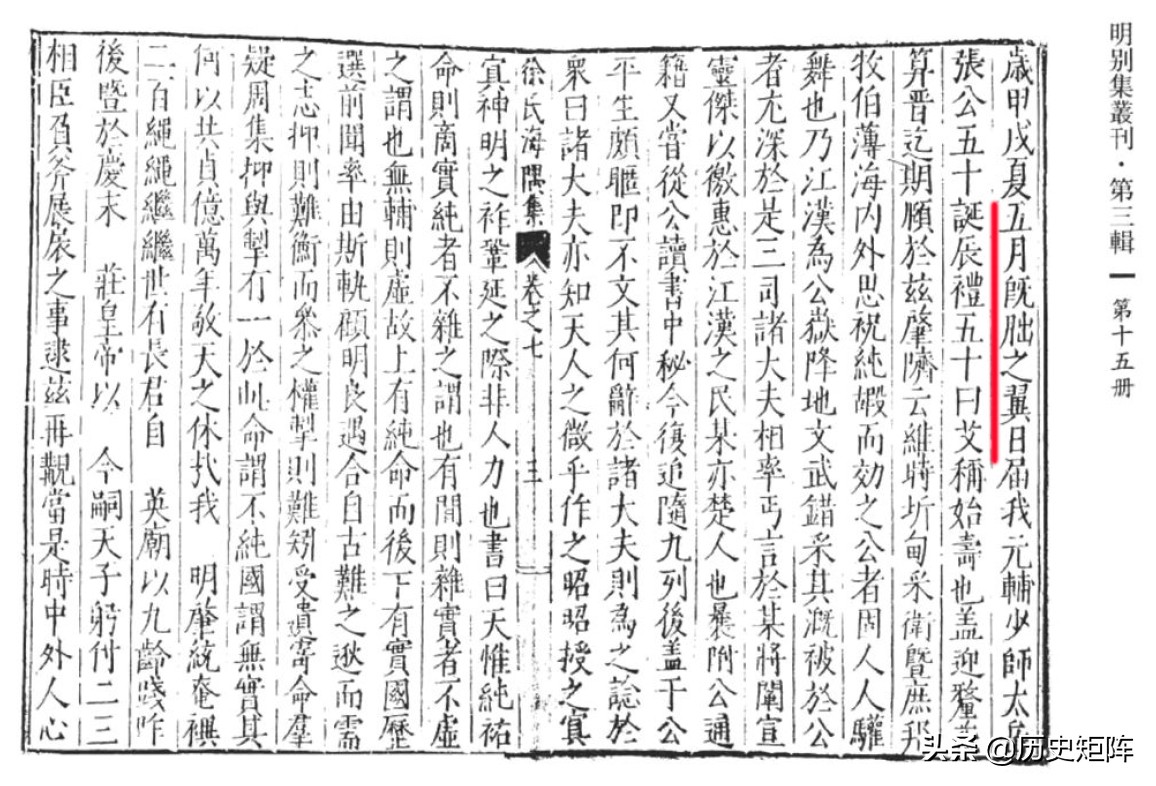 明別集叢刊・第三輯 第十五册
歲甲戌夏五月旣朏之翼日届我元輔少師太岳
張公五十誕辰禮五十曰艾稱始壽也盖迎釐
算晋迄期頤於兹肇隮云維時圻甸采衛暨庶邦
牧伯薄海内外思祝純嘏而効之公者固人人驩
舞也乃江漢為公嶽降地文武錯采其溉被於公
者尤深於是三司諸大夫相率丐言於某將闡宣
靈傑以徼惠於江漢之民某亦楚人也曩附公通
籍又嘗從公讀書中秘今復追隨九列後盖于公
平生頗驅即不文其何辭於諸大夫則為之諗於
衆曰諸大夫亦知天人之微乎作之昭昭授之寘
徐氏海隅集 卷之七 三
寘神明之祚鞏延之際非人力也書曰天惟純祐
命則商實純者不雜之謂也有間則雜實者不虛
之謂也無輔則虛故上有純命而後下有實國歷
選前聞率由斯軌顧明良遇合自古難之逖而需
之志抑則難衡而衆之權掣則難矧受遺寄命羣
疑周集抑與掣有一於此命謂不純國謂無實其
何以共貞億萬年敬天之休我 明肇統奄禩
二百繩繩繼繼世有長君自 英廟以九齡踐阼
後暨於慶末 莊皇帝以 今嗣天子躬付二三
相臣負斧展扆之事逮兹再觀當是時中外人心
头条 @历史矩阵